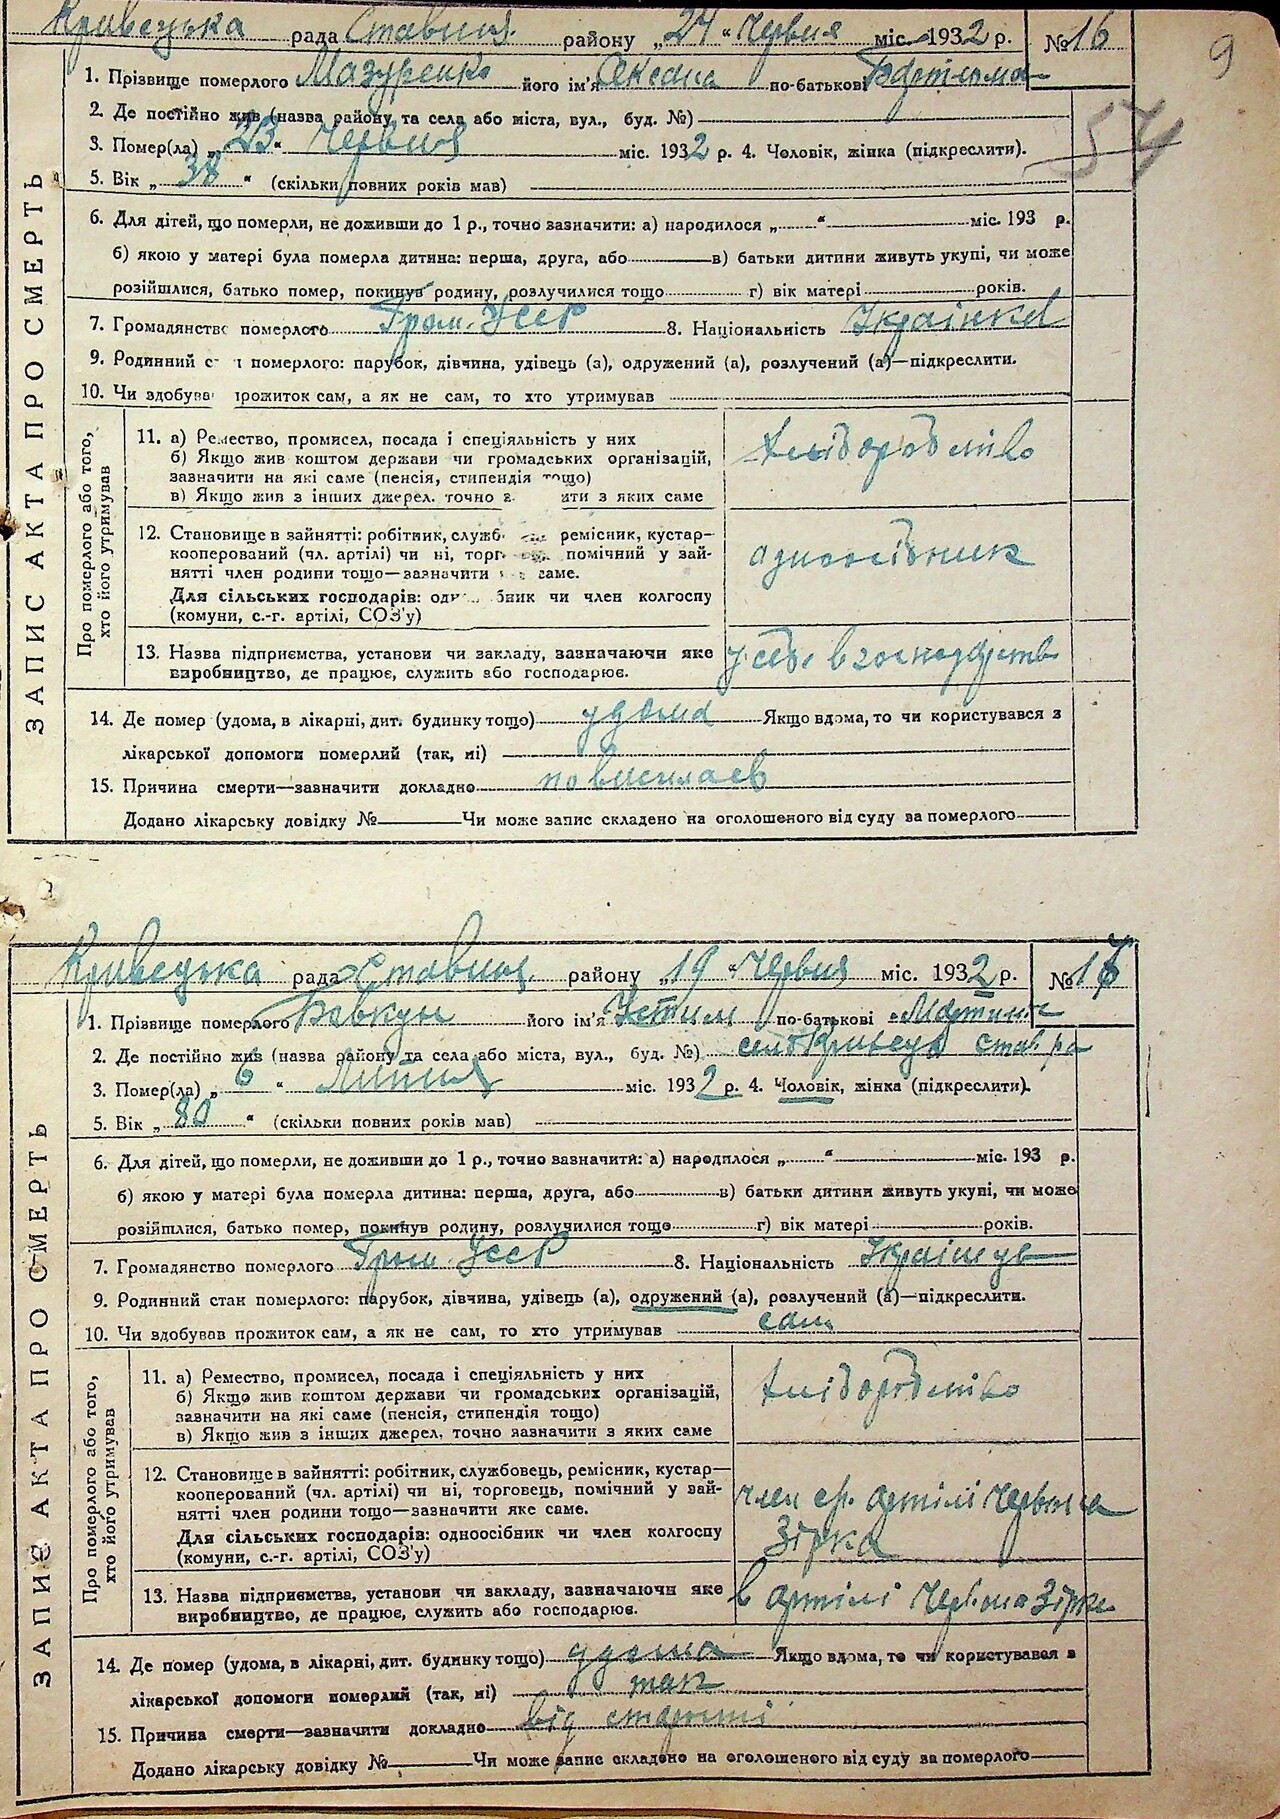 Кривецька рада Ставищ. району „24“ Червня міс. 1932 р. №16
9
1. Прізвище померлого Мазуренко його ім'я по-батькові
57
2. Де постійно жив (назва району та села або міста, вул., буд. №)
3. Помер(ла) „23“ Червня міс. 1932 р. 4. Чоловік, жінка (підкреслити).
5. Вік „38“ (скільки повних років мав)
6. Для дітей, що померли, не доживши до 1 р., точно зазначити: а) народилося „ “ міс. 193 р.
б) якою у матері була померла дитина: перша, друга, або в) батьки дитини живуть укупі, чи може
розійшлися, батько помер, покинув родину, розлучилися тощо г) вік матері років.
7. Громадянство померлого Гром. УССР 8. Національність Українка
9. Родинний с н померлого: парубок, дівчина, удівець (а), одружений (а), розлучений (а)—підкреслити.
10. Чи здобував прожиток сам, а як не сам, то хто утримував
ЗАПИС АКТА ПРО СМЕРТЬ
Про померлого або того,
хто його утримував
11. а) Ремество, промисел, посада і спеціяльність у них
б) Якщо жив коштом держави чи громадських організацій,
зазначити на які саме (пенсія, стипендія тощо)
в) Якщо жив з інших джерел, точно з ати з яких саме
хліборобство
12. Становище в зайнятті: робітник, служб ремісник, кустар—
кооперований (чл. артілі) чи ні, торг помічний у зай-
нятті член родини тощо—зазначити саме.
Для сільських господарів: од бник чи член колгоспу
(комуни, с.-г. артілі, СОЗ'у)
одноосібник
13. Назва підприємства, установи чи закладу, зазначаючи яке
виробництво, де працює, служить або господарює.
у себе в господарстві
14. Де помер (удома, в лікарні, дит. будинку тощо) удома Якщо вдома, то чи користувався з
лікарської допомоги померлий (так, ні)
15. Причина смерти—зазначити докладно
Додано лікарську довідку № Чи може запис складено на оголошеного від суду за померлого
Кривецька рада Ставищ. району „19“ Червня міс. 1932 р. №17
1. Прізвище померлого Бовкун його ім'я Устим по-батькові
2. Де постійно жив (назва району та села або міста, вул., буд. №) село Кривець Став. р
3. Помер(ла) „6“ Липня міс. 1932 р. 4. Чоловік, жінка (підкреслити).
5. Вік „80“ (скільки повних років мав)
6. Для дітей, що померли, не доживши до 1 р., точно зазначити: а) народилося „ “ міс. 193 р.
б) якою у матері була померла дитина: перша, друга, або в) батьки дитини живуть укупі, чи може
розійшлися, батько помер, покинув родину, розлучилися тощо г) вік матері років.
7. Громадянство померлого Гром УССР 8. Національність Українець
9. Родинний стан померлого: парубок, дівчина, удівець (а), одружений (а), розлучений (а)—підкреслити.
10. Чи здобував прожиток сам, а як не сам, то хто утримував сам
ЗАПИС АКТА ПРО СМЕРТЬ
Про померлого або того,
хто його утримував
11. а) Ремество, промисел, посада і спеціяльність у них
б) Якщо жив коштом держави чи громадських організацій,
зазначити на які саме (пенсія, стипендія тощо)
в) Якщо жив з інших джерел, точно зазначити з яких саме
хліборобство
12. Становище в зайнятті: робітник, службовець, ремісник, кустар—
кооперований (чл. артілі) чи ні, торговець, помічний у зай-
нятті член родини тощо—зазначити яке саме.
Для сільських господарів: одноосібник чи член колгоспу
(комуни, с.-г. артілі, СОЗ'у)
член с.г. артілі Червона
Зірка
13. Назва підприємства, установи чи закладу, зазначаючи яке
виробництво, де працює, служить або господарює.
в артілі Червона Зірка
14. Де помер (удома, в лікарні, дит. будинку тощо) удома Якщо вдома, то чи користувався з
лікарської допомоги померлий (так, ні) так
15. Причина смерти—зазначити докладно від старости
Додано лікарську довідку № Чи може запис складено на оголошеного від суду за померлого